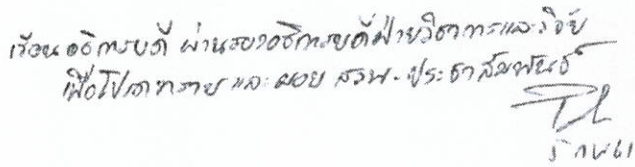 เรียน อธิการบดี ผ่านรองอธิการบดีฝ่ายวิชาการและวิจัย
เพื่อโปรดทราบ และมอบ สวพ. ประชาสัมพันธ์